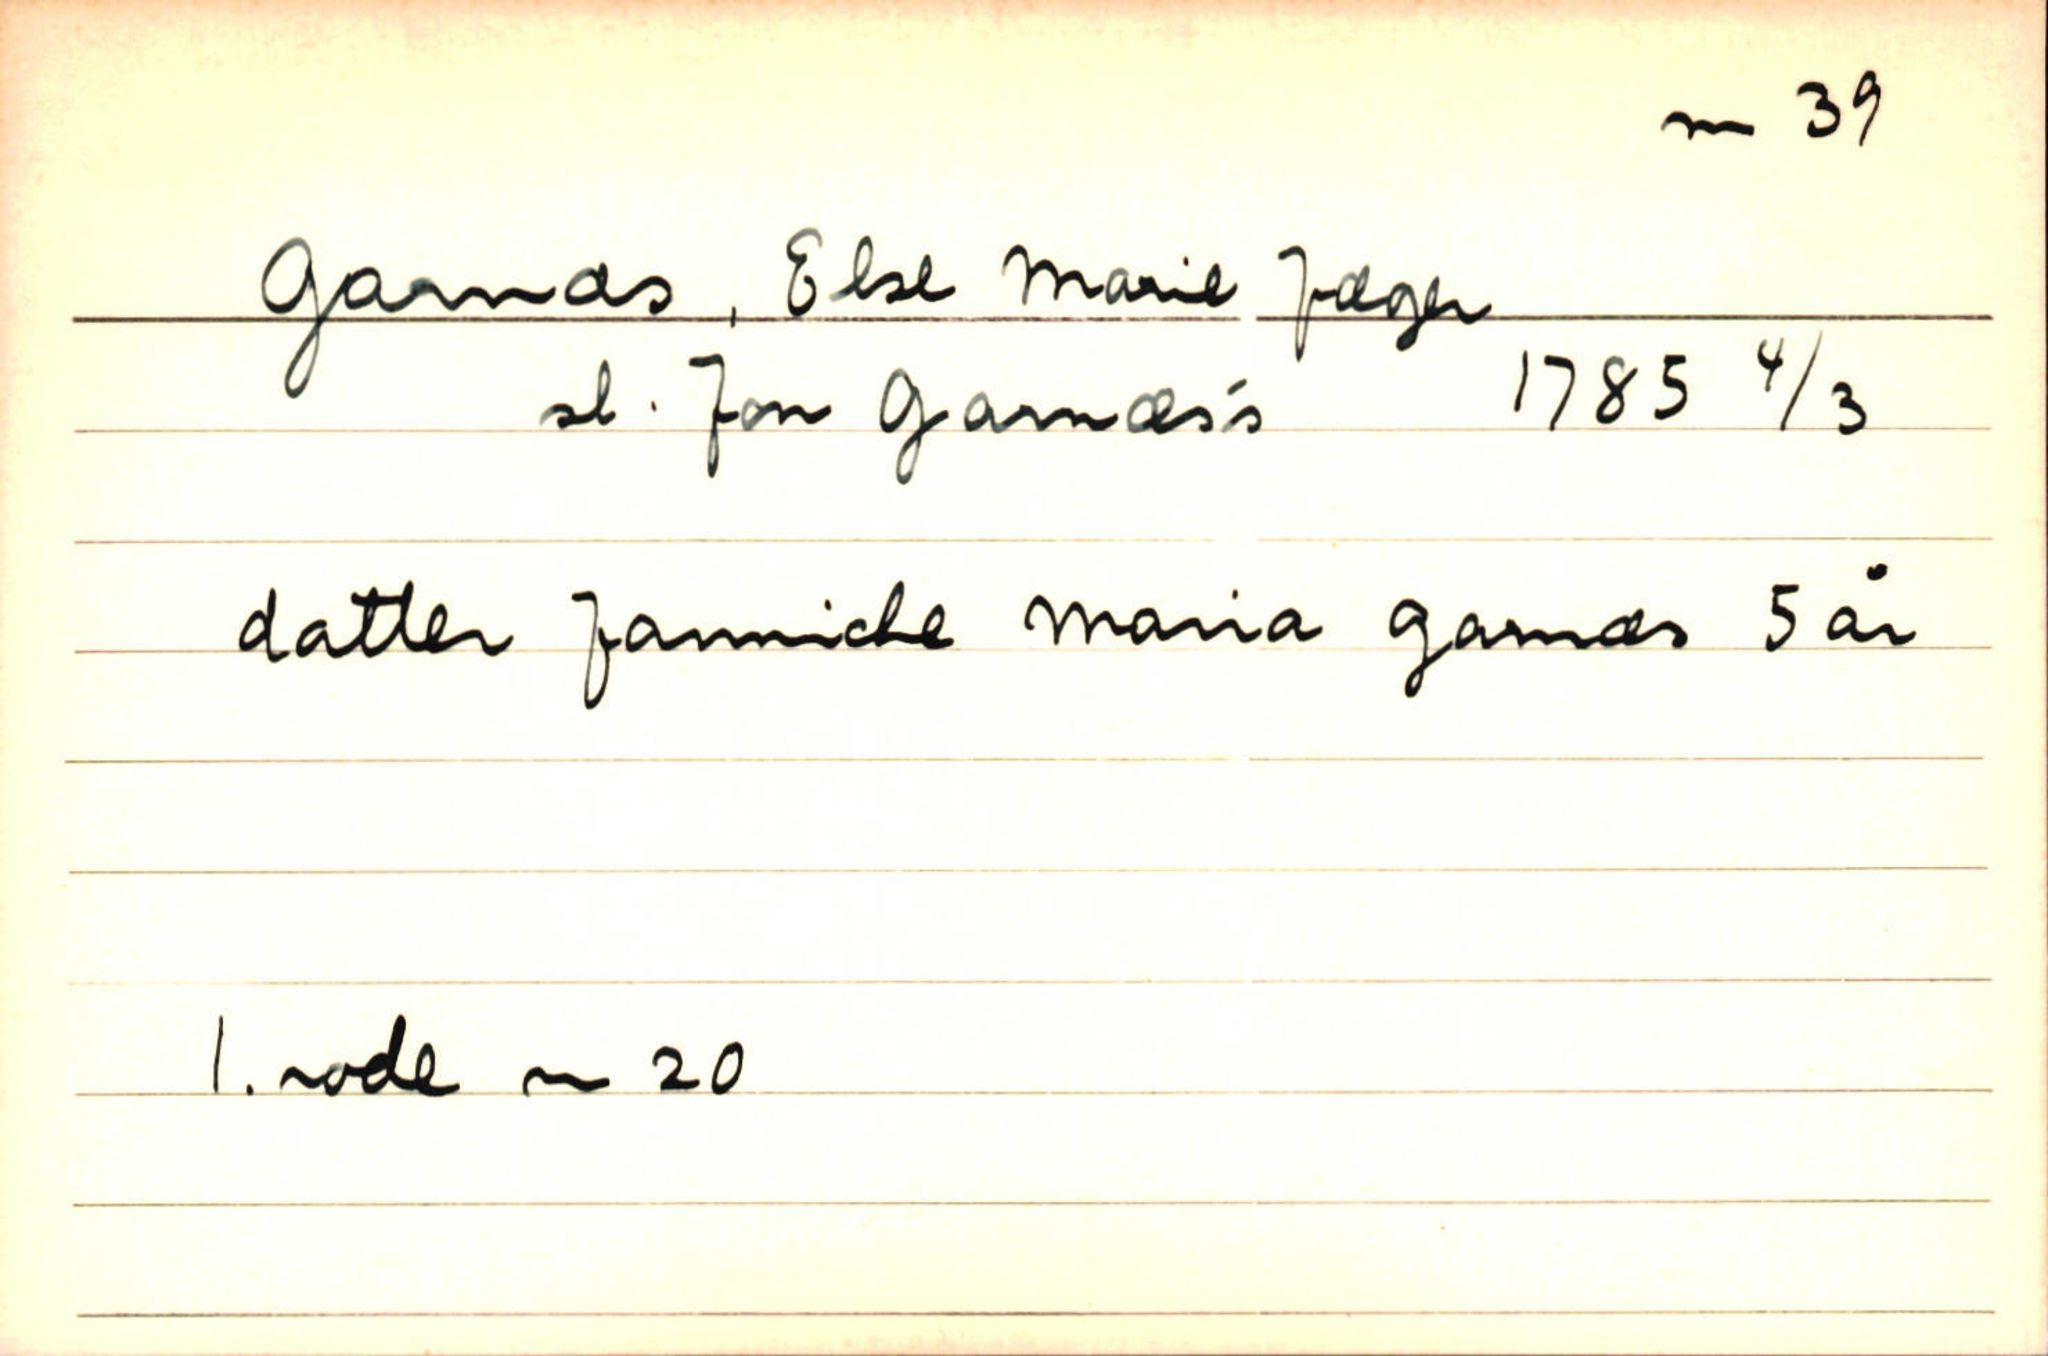 nr 39
Garnæs, Else Marie Jæger
sl. Jon Garnæs's 1785 4/3
datter Janniche Maria Garnæs 5 år
1. rode nr 20